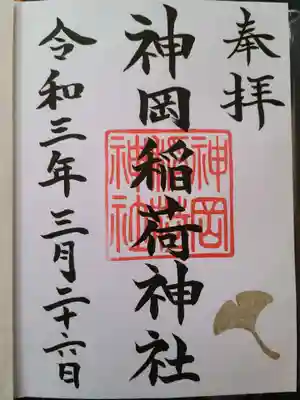 奉拝
神岡稲荷神社
神岡
稲荷
神社
令和三年三月二十六日